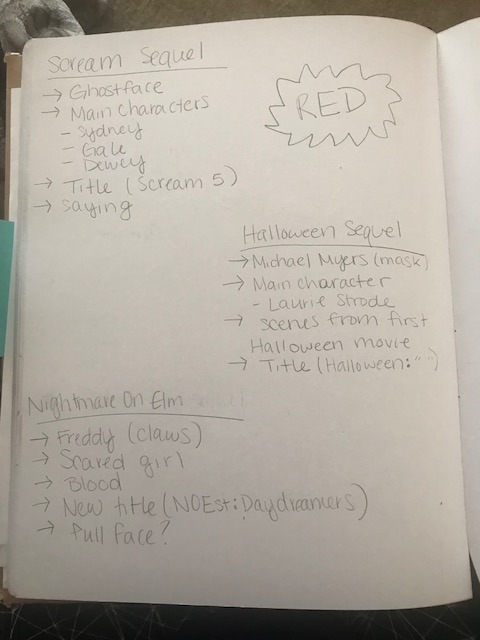 Scream Sequel
→ Ghostface
→ Main characters
- Sydney
- Gale
- Dewey
→ Title (Scream 5)
→ saying
RED
Halloween Sequel
→ Michael Myers (mask)
→ Main character
- Laurie Strode
→ scenes from first
Halloween movie
→ Title (Halloween: "...")
Nightmare On Elm
→ Freddy (claws)
→ Scared girl
→ Blood
→ New title (NOEst: Daydreamers)
→ full face?